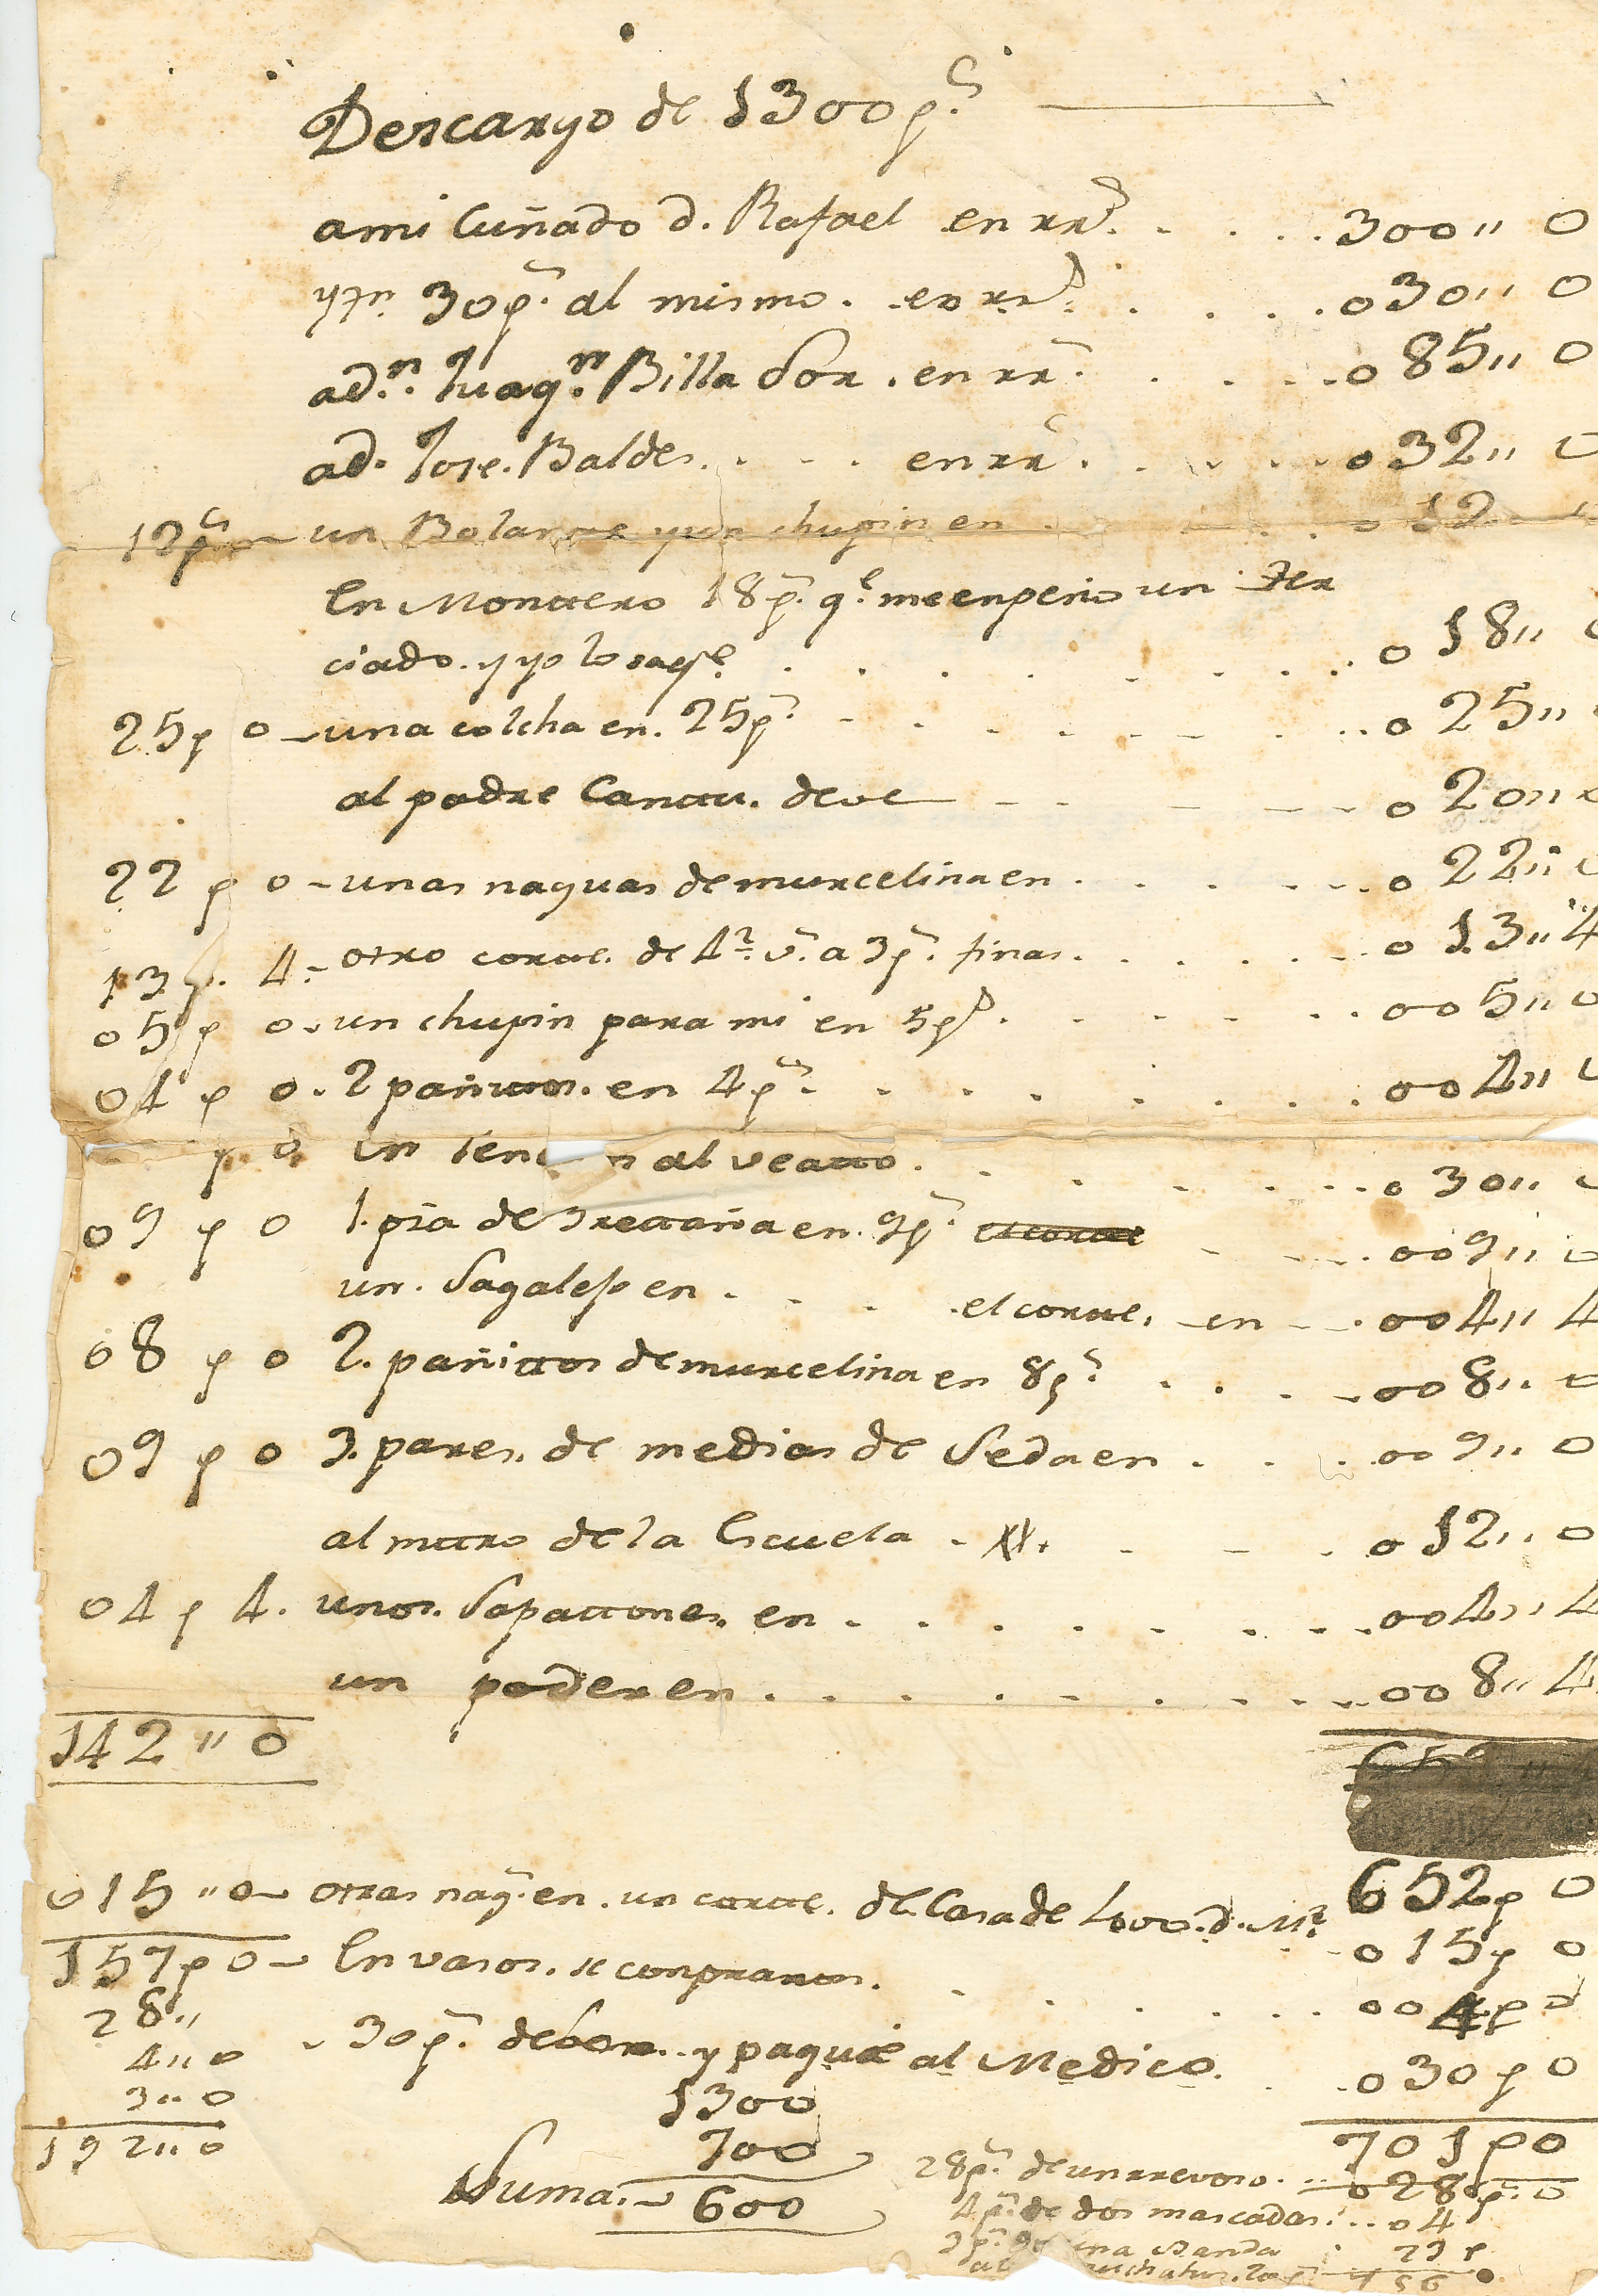 Descargo de 1300p.s
a mi Cuñado d. Rafael en rr.s . . . . 300,, 0
ytn. 30p.s al mismo . en rr.s . . . . 030,, 0
ad.n Juaq.n Billa Sor . en rr.s . . . . 085,, 0
ad. Jose. Baldes . . . en rr.s . . . . 032,, 0
12p.s un Bolante y un chupin en . . . 012 0
En Monttero 18p.s q.e me enpeño un Ter
ciado. y yo lo saq.e . . . . 018,, 0
25p 0 - una colcha en. 25p.s . . . . 025,, 0
al padre Canttu. deve 020,, 0
22 p 0 - unas naguas de murcelina en . . . . 022,, 0
13p. 4 - otro cortte. de 4½ v.s a 3p.s finas . . . . 013,, 4
05 p 0 - un chupin para mi en 5p.s . . . . 005,, 0
04 p 0 . 2 pañittos. en 4p.s . . . . 004,, 0
p 0 un al veatto . . . . 030,, 0
09 p 0 1. psa de Brettaña en. 9p.s . . . 009,, 0
un. Sagalejo en . . . el cortte. en 004,, 4
08 p 0 2. pañittos de murcelina en 8p.s . . . 008,, 0
09 p 0 3. pares. de medias de Seda en . . . 009,, 0
al mttro de la Escuela . . . 012,, 0
04 p 4. unos. Sapattones. en . . . . 004,, 4
un poder en . . . . 008,, 4
142 ,, 0
652p 0
015 ,, 0 - otras nag.s en . un cortte. de Casa de d. M.l 015p 0
157p 0 - En vasos. se conpraron. . . . . 004p 0
28,,
4,, 0 - 30p.s debon. y pagué al Medico. 030p 0
3,, 0 1300
192,, 0 700 701p0
Suma. - 600
28p.s de un rrevoso. 028p. 0
4p.s de dos mascadas . . 04
3p.s una vanda